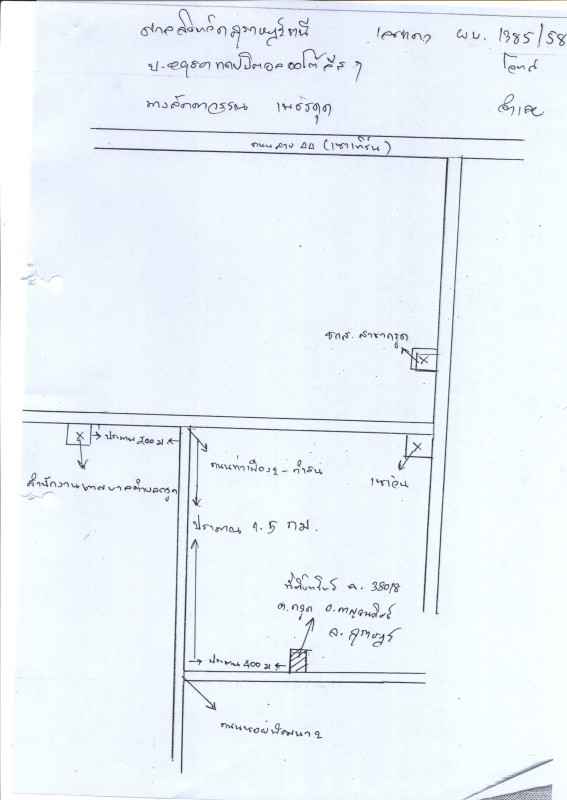 ศาลจังหวัดสุราษฎร์ธานี เลขแดง ผบ. 1385/58
บ. อยุธยา แคปปิตอล ออโต้ ลีส ฯ โจทก์
นางลัดดาวรรณ เพชรคุด จำเลย
ถนนสาย 44 (เซาเทิร์น)
ธกส. สาขากรูด
ประมาณ 200 ม
ถนนท่าเฟือง 2 - กำสน
สำนักงานเทศบาลตำบลกรูด
เซเว่น
ประมาณ 1.5 กม.
ที่ตั้งทรัพย์ ค. 380/8
ต.กรูด อ.กาญจนดิษฐ์
จ. สุราษฎร์
ประมาณ 400 ม
ถนนพัฒนา 2